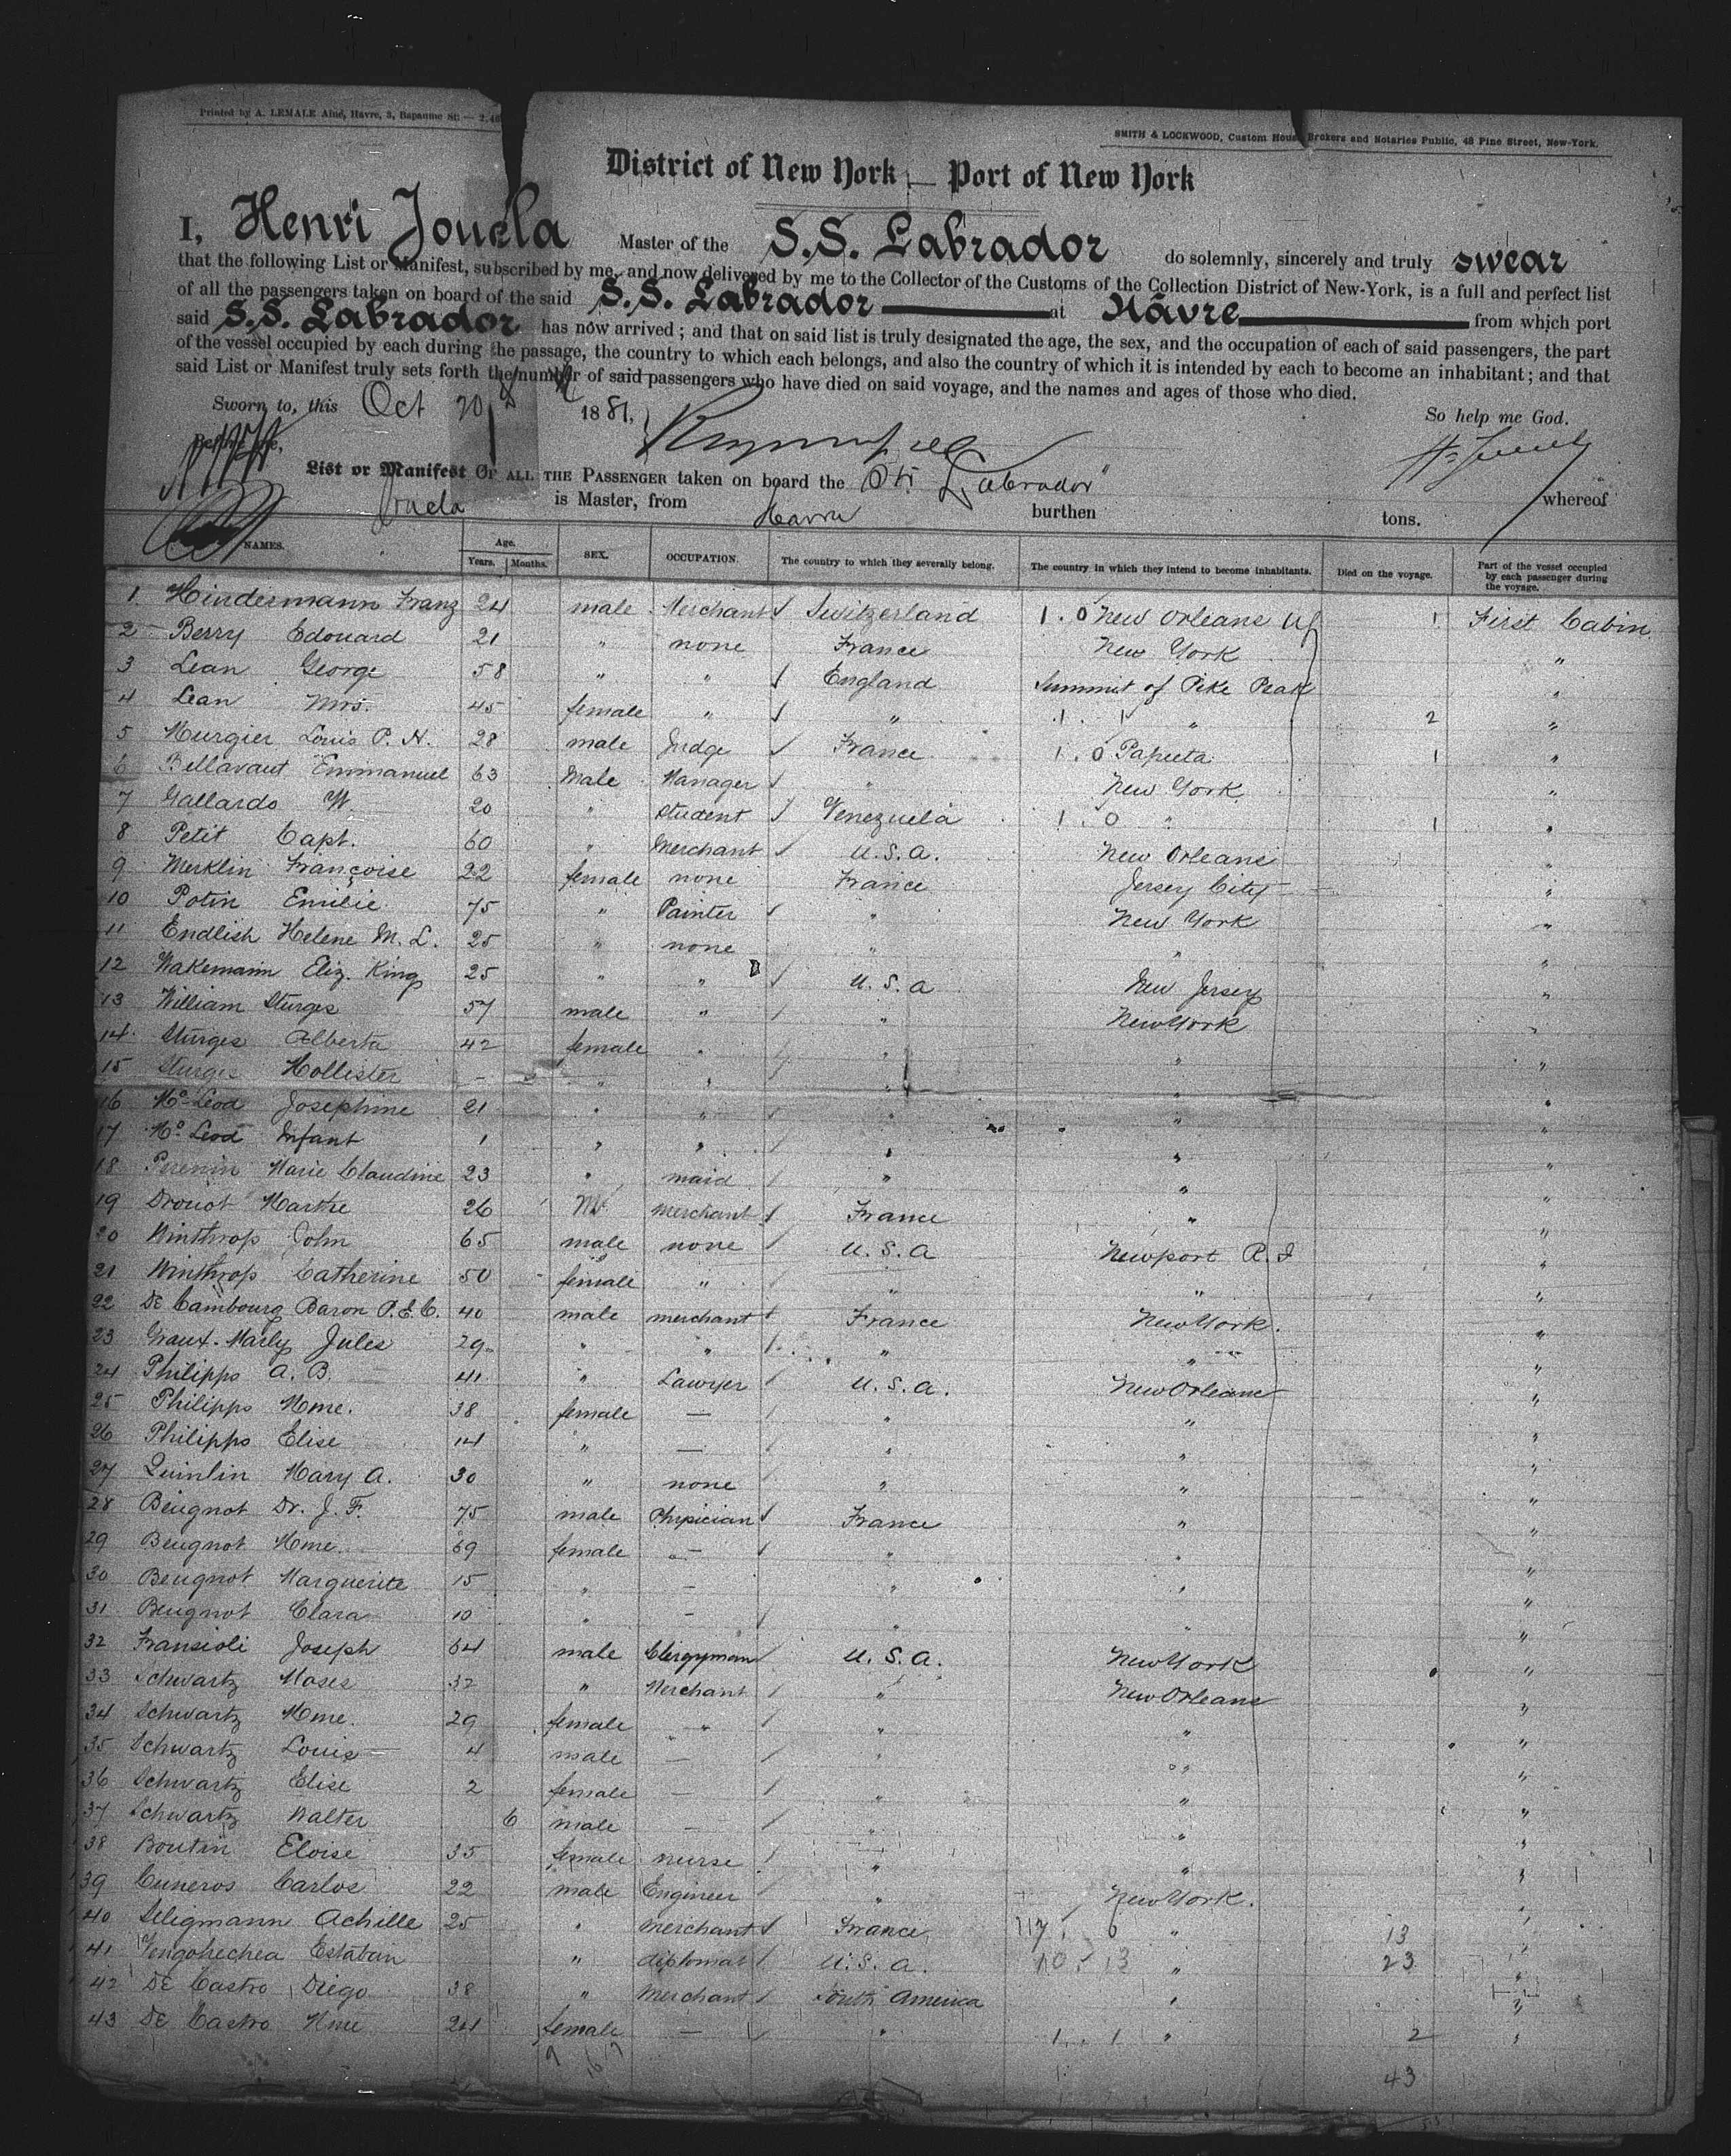 Printed by A. LEMALE Aîné, Havre, 3, Bapaume St. — 2.46
SMITH & LOCKWOOD, Custom House Brokers and Notaries Public, 48 Pine Street, New-York.
District of New York — Port of New York
I, Henri Jouela Master of the S.S. Labrador do solemnly, sincerely and truly swear
that the following List or Manifest, subscribed by me, and now delivered by me to the Collector of the Customs of the Collection District of New-York, is a full and perfect list
of all the passengers taken on board of the said S.S. Labrador at Hâvre from which port
said S.S. Labrador has now arrived; and that on said list is truly designated the age, the sex, and the occupation of each of said passengers, the part
of the vessel occupied by each during the passage, the country to which each belongs, and also the country of which it is intended by each to become an inhabitant; and that
said List or Manifest truly sets forth the number of said passengers who have died on said voyage, and the names and ages of those who died.
Sworn to, this Oct 20 1881, So help me God.
Before me,
List or Manifest OF ALL THE PASSENGER taken on board the Str Labrador whereof
Jouela is Master, from Havre burthen tons.
NAMES. Age. Years. Months. SEX. OCCUPATION. The country to which they severally belong. The country in which they intend to become inhabitants. Died on the voyage. Part of the vessel occupied by each passenger during the voyage.
1 Hindermann Franz 24 male Merchant Switzerland 1.0 New Orleans 1 First Cabin
2 Berry Edouard 21 " none France New York "
3 Lean George 58 " " England Summit of Pike Peak "
4 Lean Mrs. 45 female " " 1. 1 " 2 "
5 Murgier Louis P. H. 28 male Judge France 1.0 Papeeta 1 "
6 Bellavaut Emmanuel 63 Male Manager " New York "
7 Gallardo W. 20 " Student Venezuela 1.0 " 1 "
8 Petit Capt. 60 " Merchant U.S.A. New Orleans "
9 Merklin Françoise 22 female none France Jersey City "
10 Potin Emilie 75 " Painter " New York "
11 Endlish Helene M. L. 25 " none " " "
12 Wakemann Eliz. King 25 " " U.S.A New Jersey "
13 William Sturges 57 male " " New York "
14 Sturges Alberta 42 female " " " "
15 Sturges Hollester — " " " " "
16 Mc Leod Josephine 21 " " " " "
17 Mc Leod Infant 1 " " " " "
18 Perenin Marie Claudine 23 " maid " " "
19 Drouot Marthe 26 M merchant France " "
20 Winthrop John 65 male none U.S.A Newport R.I "
21 Winthrop Catherine 50 female " " " "
22 De Cambourg Baron P.E.C. 40 male merchant France New York. "
23 Graux-Marly Jules 29 " " " " "
24 Philipps A. B. 41 " Lawyer U.S.A. New Orleans "
25 Philipps Mme. 38 female — " " "
26 Philipps Elise 14 " — " " "
27 Quinlin Mary A. 30 " none " " "
28 Beugnot Dr. J. F. 75 male Physician France " "
29 Beugnot Mme. 69 female — " " "
30 Beugnot Marguerite 15 " — " " "
31 Beugnot Clara 10 " — " " "
32 Fransioli Joseph 64 male Clergyman U.S.A. New York "
33 Schwartz Moses 32 " Merchant " New Orleans "
34 Schwartz Mme. 29 female " " " "
35 Schwartz Louis 4 male — " " "
36 Schwartz Elise 2 female — " " "
37 Schwartz Walter 6 male — " " "
38 Boutin Eloise 35 female nurse " " "
39 Cuneros Carlos 22 male Engineer " New York. "
40 Seligmann Achille 25 " Merchant France 7 6 " 13 "
41 Yengohechea Estaban " diplomat U.S.A. 10.13 " 23 "
42 De Castro Diego 38 " Merchant South America " "
43 De Castro Mme 24 female — " 1. 1 " 2 "
43